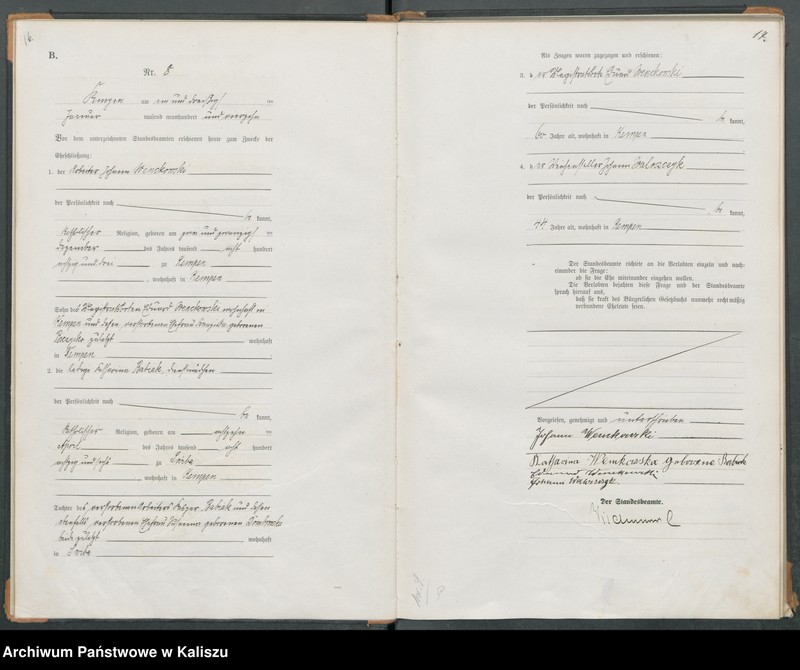 16.
B.
Nr. 8
Kempen am ein und dreißig ten
Januar tausend neunhundert und vierzehn
Vor dem unterzeichneten Standesbeamten erschienen heute zum Zwecke der
Eheschließung:
1. der Arbeiter Johann Wenckowski
der Persönlichkeit nach
be kannt,
katholischer Religion, geboren am zwei und zwanzig ten
Dezember des Jahres tausend acht hundert
achtzig und drei zu Kempen
, wohnhaft in Kempen
Sohn des Magistratsboten Eduard Wenckowski wohnhaft in
Kempen und dessen verstorbenen Ehefrau geborenen
zuletzt wohnhaft
in Kempen
2. die ledige Katharina Babiak, Dienstmädchen
der Persönlichkeit nach
be kannt,
katholischer Religion, geboren am achtzehnten
April des Jahres tausend acht hundert
achtzig und sechs zu
, wohnhaft in Kempen
Tochter des verstorbenen Arbeiters Babiak und dessen
ebenfalls verstorbenen Ehefrau geborenen
beide zuletzt wohnhaft
in
17.
Als Zeugen waren zugezogen und erschienen:
3. der Magistratsbote Eduard Wenckowski
der Persönlichkeit nach
be kannt,
60 Jahre alt, wohnhaft in Kempen
4. der Johann
der Persönlichkeit nach
be kannt,
44 Jahre alt, wohnhaft in Kempen
Der Standesbeamte richtete an die Verlobten einzeln und nach-
einander die Frage:
ob sie die Ehe miteinander eingehen wollen.
Die Verlobten bejahten diese Frage und der Standesbeamte
sprach hierauf aus,
daß sie kraft des Bürgerlichen Gesetzbuchs nunmehr rechtmäßig
verbundene Eheleute seien.
Vorgelesen, genehmigt und unterschrieben
Johann Wenckowski
Katharina Wenkowska geborene Babiak
Eduard Wenckowski
Johann
Der Standesbeamte.
Archiwum Państwowe w Kaliszu